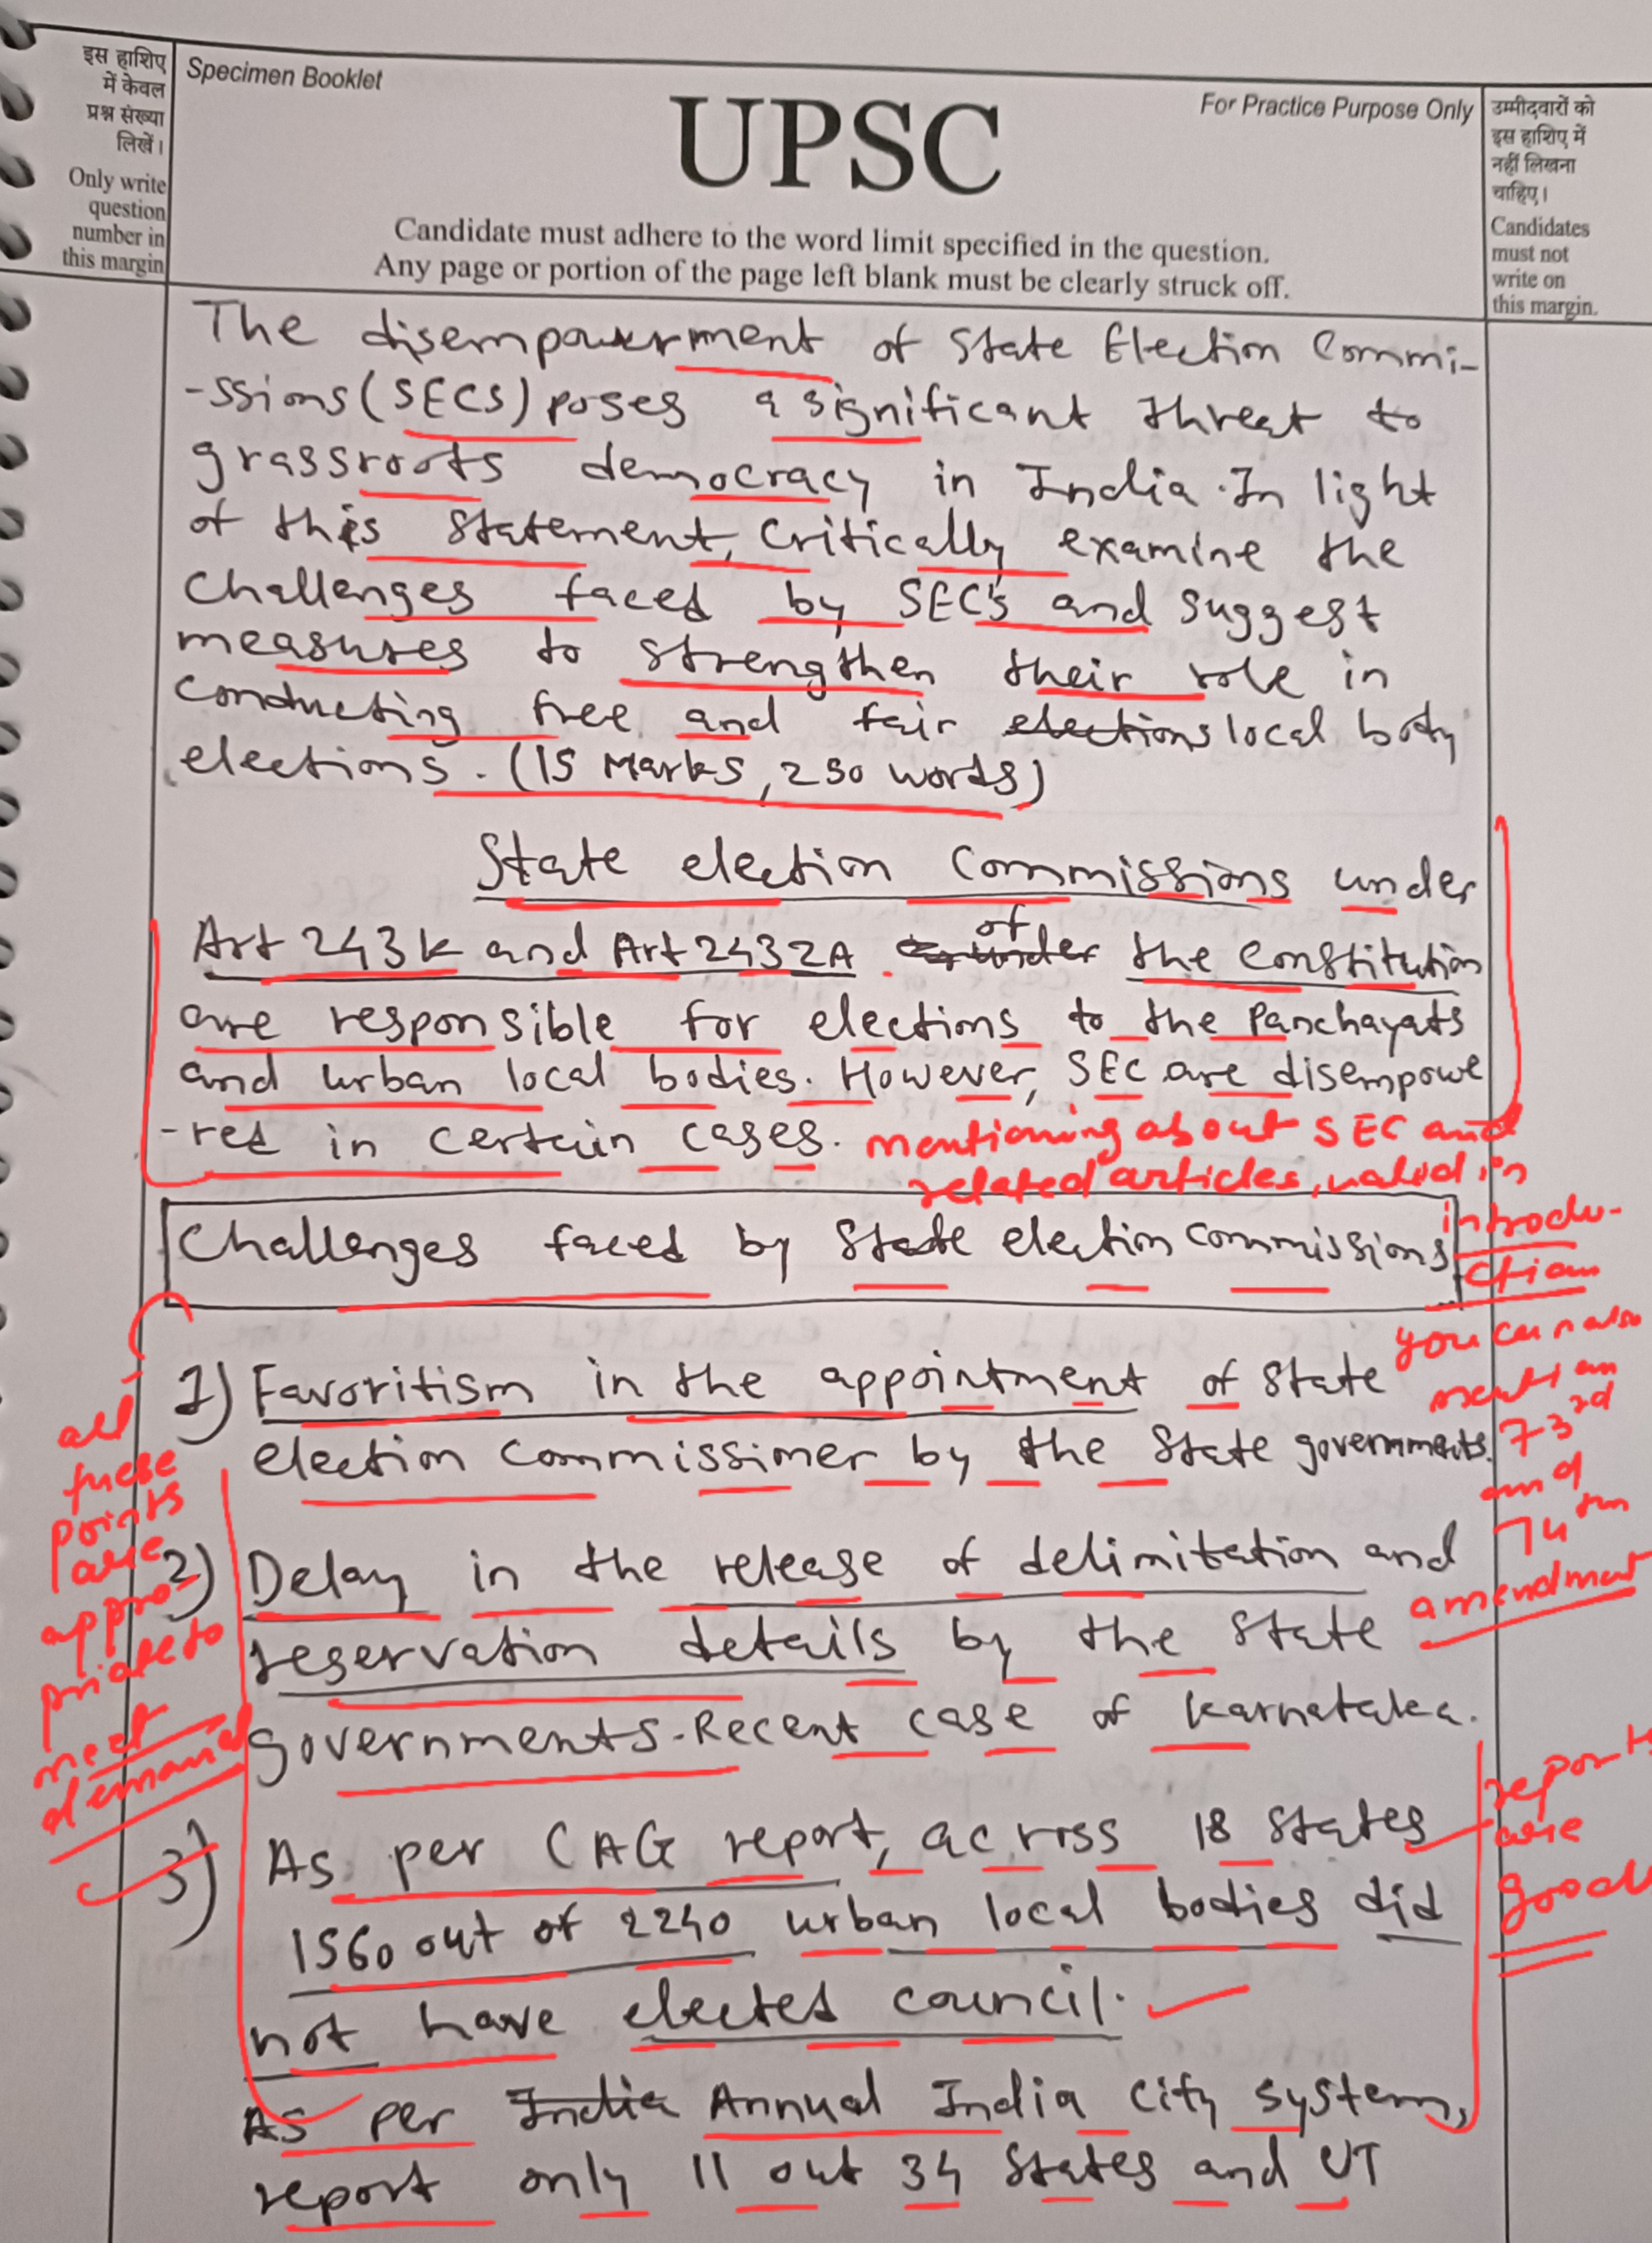 इस हाशिए
में केवल
प्रश्न संख्या
लिखें।
Only write
question
number in
this margin
Specimen Booklet
UPSC
For Practice Purpose Only
Candidate must adhere to the word limit specified in the question.
Any page or portion of the page left blank must be clearly struck off.
उम्मीदवारों को
इस हाशिए में
नहीं लिखना
चाहिए।
Candidates
must not
write on
this margin.
The disempowerment of State Election Commi-
-ssions (SECS) poses a significant threat to
grassroots democracy in India. In light
of this statement, critically examine the
challenges faced by SEC's and suggest
measures to strengthen their role in
conducting free and fair elections local body
elections. (15 Marks, 250 words)
State election commissions under
Art 243K and Art 243ZA of the constitution
are responsible for elections to the Panchayats
and urban local bodies. However, SEC are disempowe
-red in certain cases.
mentioning about SEC and
related articles, valid in
introdu-
ction
Challenges faced by State election commissions
you can also
mention
73rd
and
74th
amendment
1) Favoritism in the appointment of state
election commissioner by the state governments.
all
these
points
are
appro-
priate to
meet
demand
2) Delay in the release of delimitation and
reservation details by the state
governments. Recent case of Karnataka.
3) As per CAG report, across 18 states
1560 out of 2240 urban local bodies did
not have elected council.
reports
are
good
As per India Annual India City system,
report only 11 out 34 states and UT